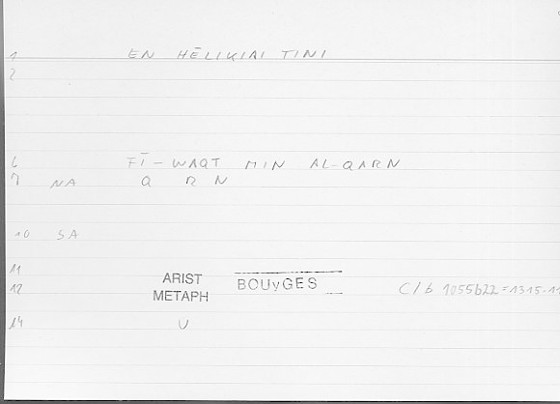 1 EN HĒLIKIAI TINI
2
6 FĪ-WAQT MIN AL-QARN
7 NA Q R N
10 SA
11
ARIST BOUyGES
12 METAPH C/b 1055b22=1315-11
14 U